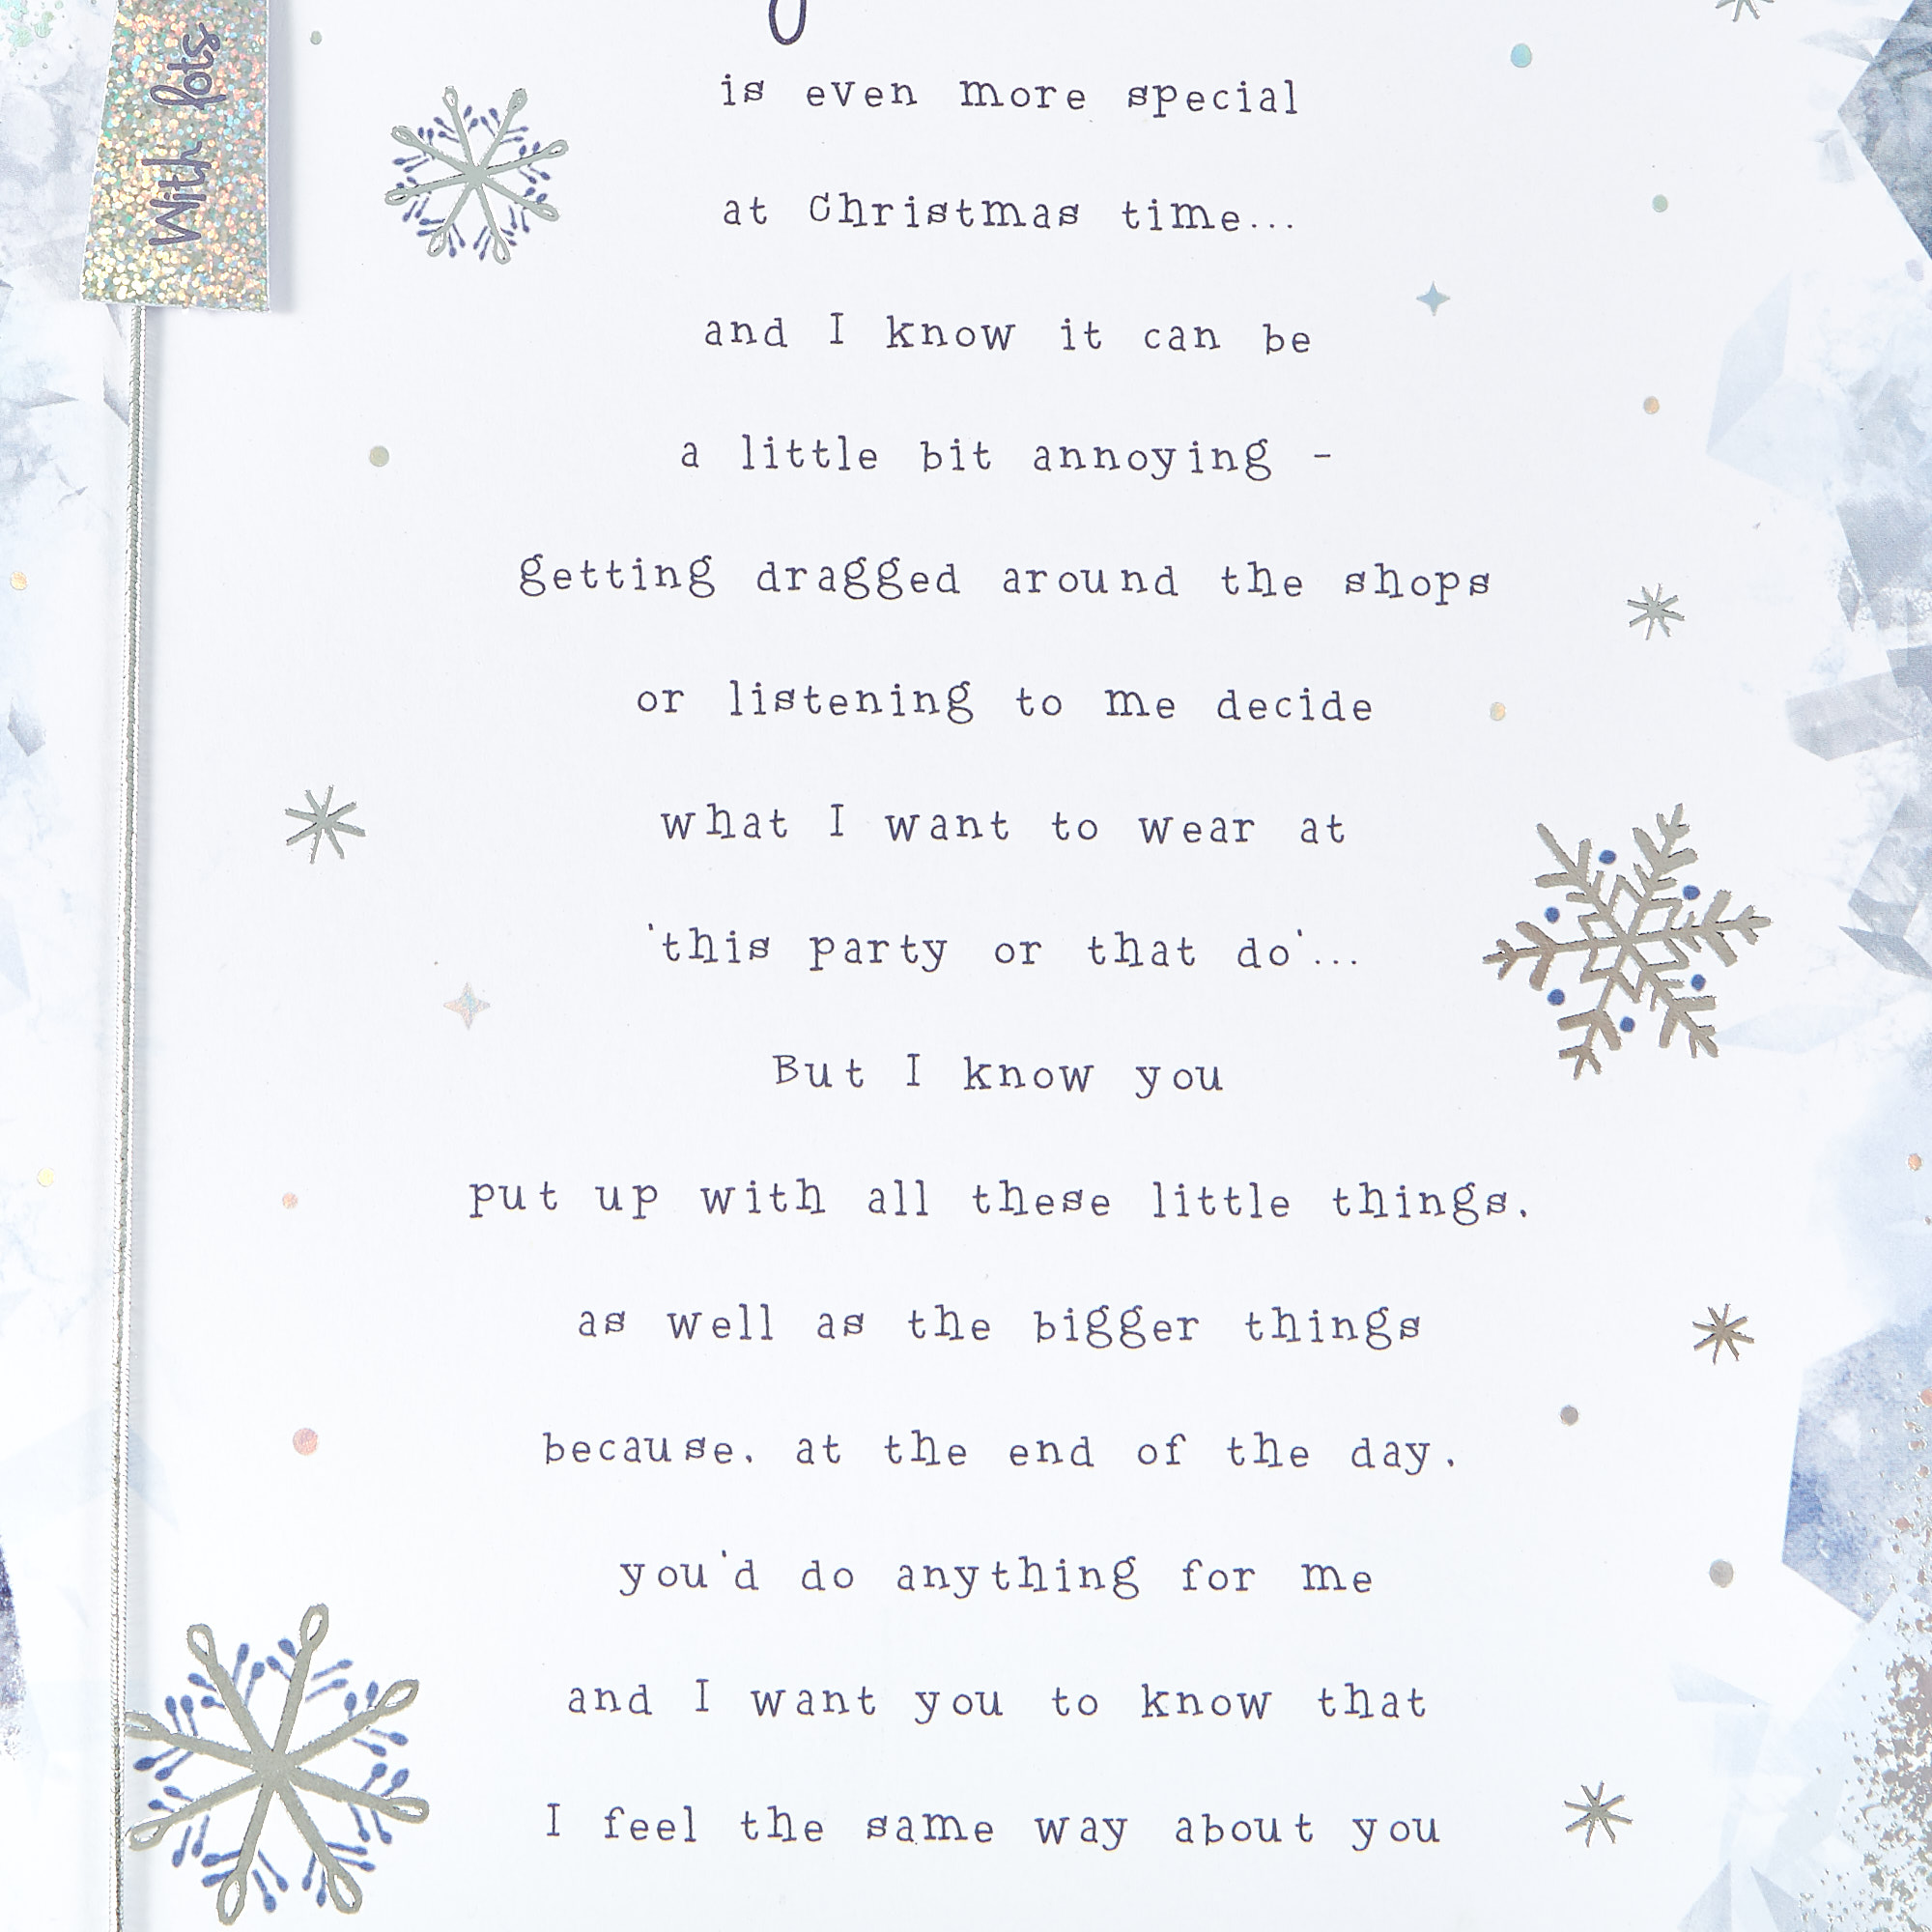 With lots
is even more special
at Christmas time...
and I know it can be
a little bit annoying -
getting dragged around the shops
or listening to me decide
what I want to wear at
'this party or that do'...
But I know you
put up with all these little things,
as well as the bigger things
because, at the end of the day,
you'd do anything for me
and I want you to know that
I feel the same way about you